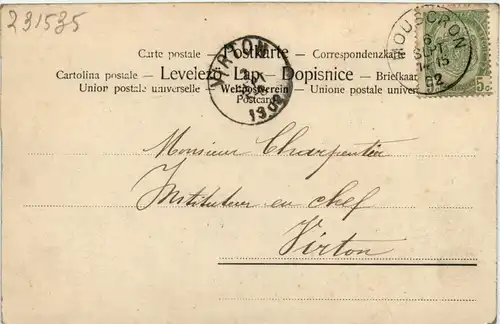 231535
Carte postale – Postkarte – Correspondenzkarte
Cartolina postale – Levelező-Lap – Dopisnice – Briefkaart
Union postale universelle – Weltpostverein – Unione postale univer
Postcard
VIRTON
1902
MOUSCRON
6
SEPT
5c
Monsieur Charpentier
Instituteur en chef
Virton